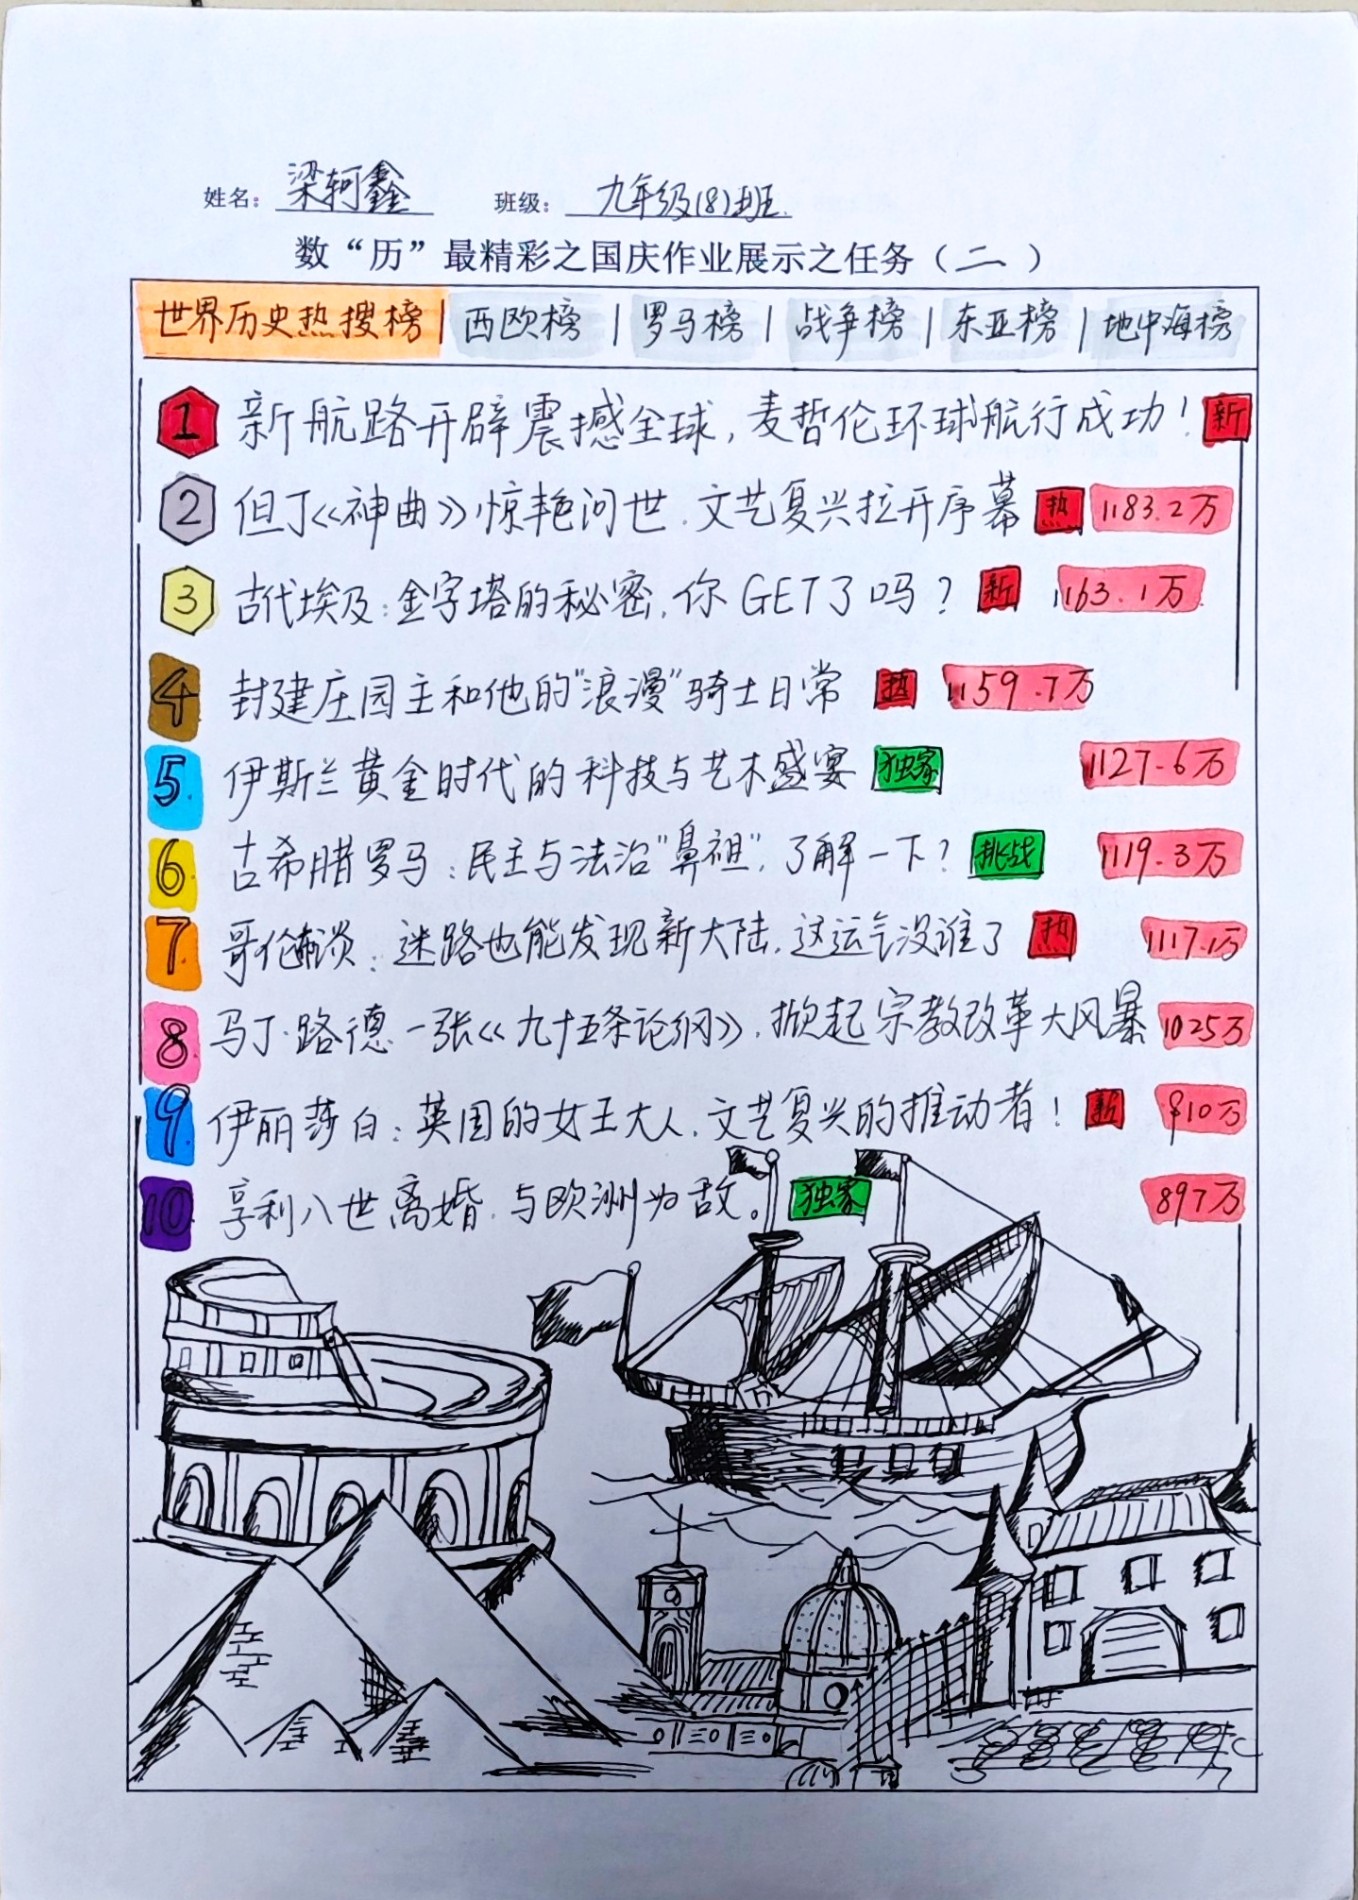 姓名：梁轲鑫 班级：九年级(8)班.
数“历”最精彩之国庆作业展示之任务（二）
世界历史热搜榜|西欧榜|罗马榜|战争榜|东亚榜|地中海榜
1 新航路开辟震撼全球，麦哲伦环球航行成功！新
2 但丁《神曲》惊艳问世.文艺复兴拉开序幕 热 1183.2万
3 古代埃及：金字塔的秘密，你GET了吗？新 1163.1万
4 封建庄园主和他的“浪漫”骑士日常 热 1159.7万
5 伊斯兰黄金时代的科技与艺术盛宴 独家 1127.6万
6 古希腊罗马：民主与法治“鼻祖”，了解一下？挑战 1119.3万
7 哥伦：迷路也能发现新大陆，这运气没谁了 热 1117.1万
8 马丁·路德一张《九十五条论纲》，掀起宗教改革大风暴 1025万
9 伊丽莎白：英国的女王大人，文艺复兴的推动者！新 910万
10 亨利八世离婚，与欧洲为敌。独家 897万